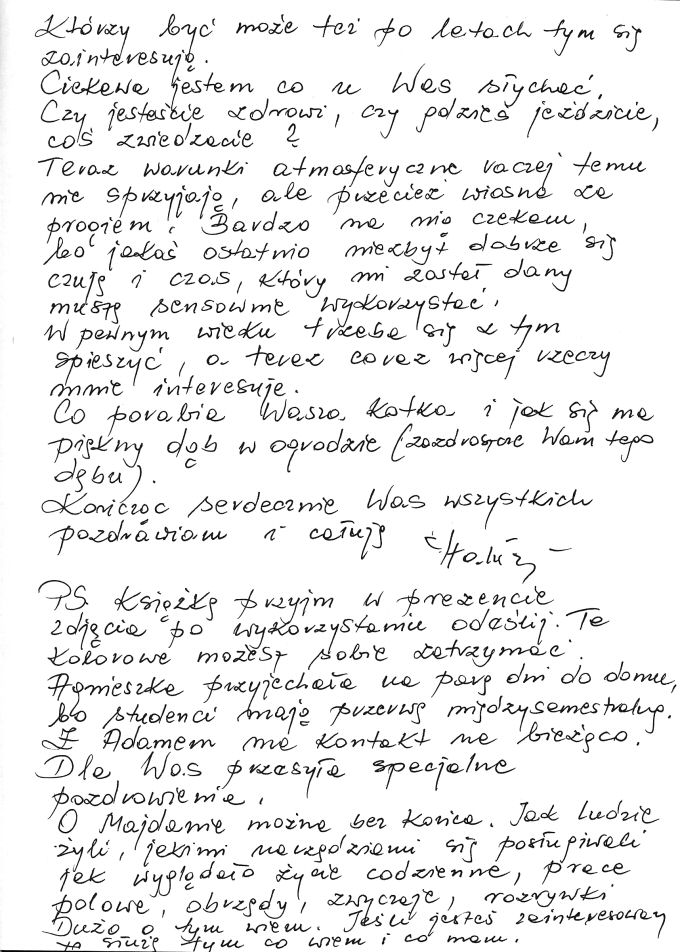 Którzy być może też po latach tym się
zainteresują.
Ciekawa jestem co u Was słychać.
Czy jesteście zdrowi, czy gdzieś jeździcie,
coś zwiedzacie?
Teraz warunki atmosferyczne raczej temu
nie sprzyjają, ale przecież wiosna za
progiem. Bardzo na nią czekam,
bo jakoś ostatnio niezbyt dobrze się
czuję i czas, który mi został dany
muszę sensownie wykorzystać.
W pewnym wieku trzeba się z tym
spieszyć, a teraz coraz więcej rzeczy
mnie interesuje.
Co porabia Wasza Kotka i jak się ma
piękny dąb w ogrodzie (zazdroszczę Wam tego
dębu).
Kończąc serdecznie Was wszystkich
pozdrawiam i całuję
PS. Książkę przyjm w prezencie
zdjęcia po wykorzystaniu odeślij. Te
kolorowe możesz sobie zatrzymać.
Agnieszka przyjechała na parę dni do domu,
bo studenci mają przerwę międzysemestralną.
Z Adamem ma kontakt na bieżąco.
Dla Was przesyła specjalne
pozdrowienia.
O Majdanie można bez końca. Jak ludzie
żyli, jakimi narzędziami się posługiwali
jak wyglądało życie codzienne, prace
polowe, obrzędy, zwyczaje, rozrywki
Dużo o tym wiem. Jeśli jesteś zainteresowany
to służę tym co wiem i co mam.